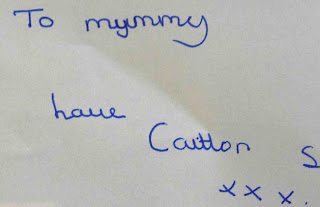 To mymmy
have
Caitlon S
x x x.